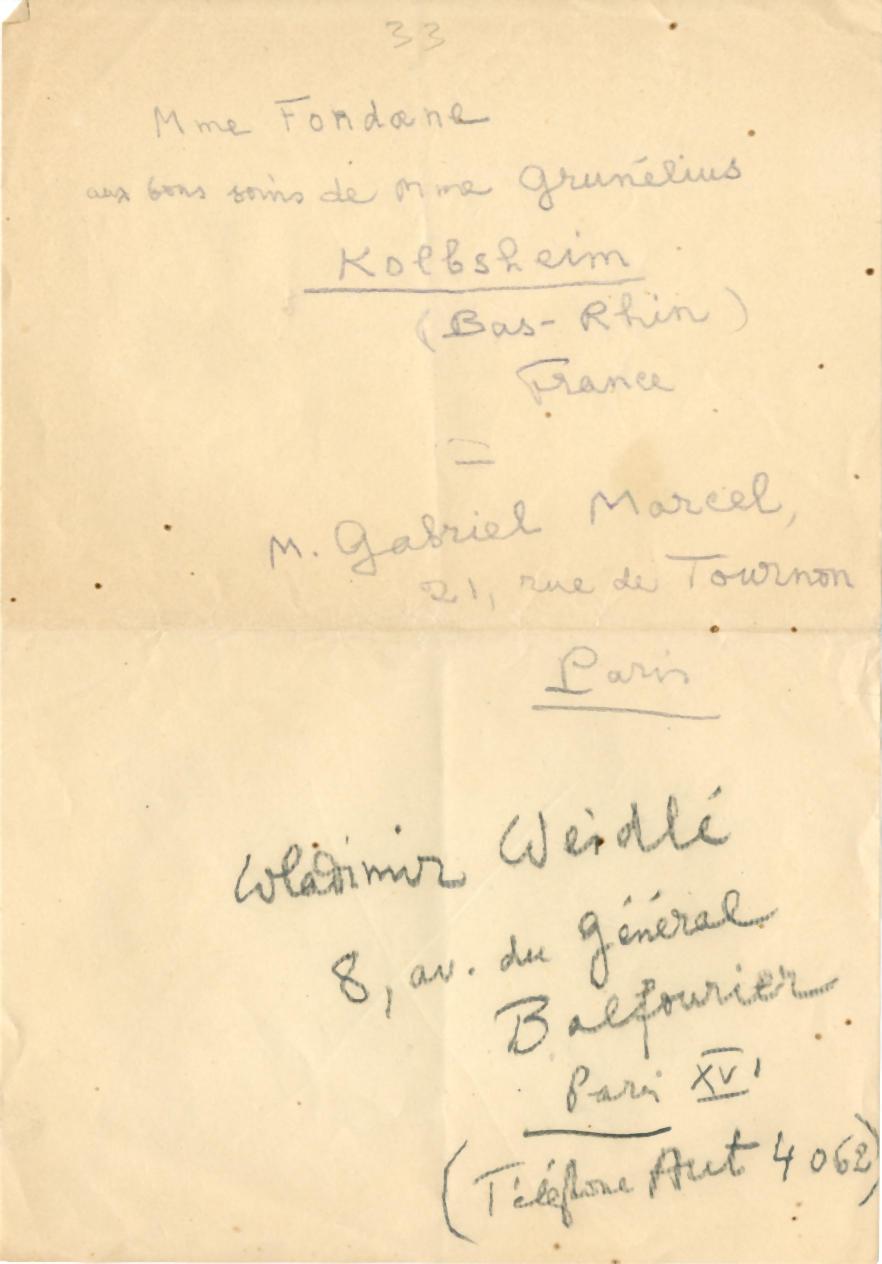 33
Mme Fondane
aux bons soins de Mme Grunélius
Kolbsheim
(Bas-Rhin)
France
M. Gabriel Marcel,
21, rue de Tournon
Paris
Wladimir Weidlé
8, av. du Général
Balfourier
Paris XVI
(Téléphone Aut 4062)